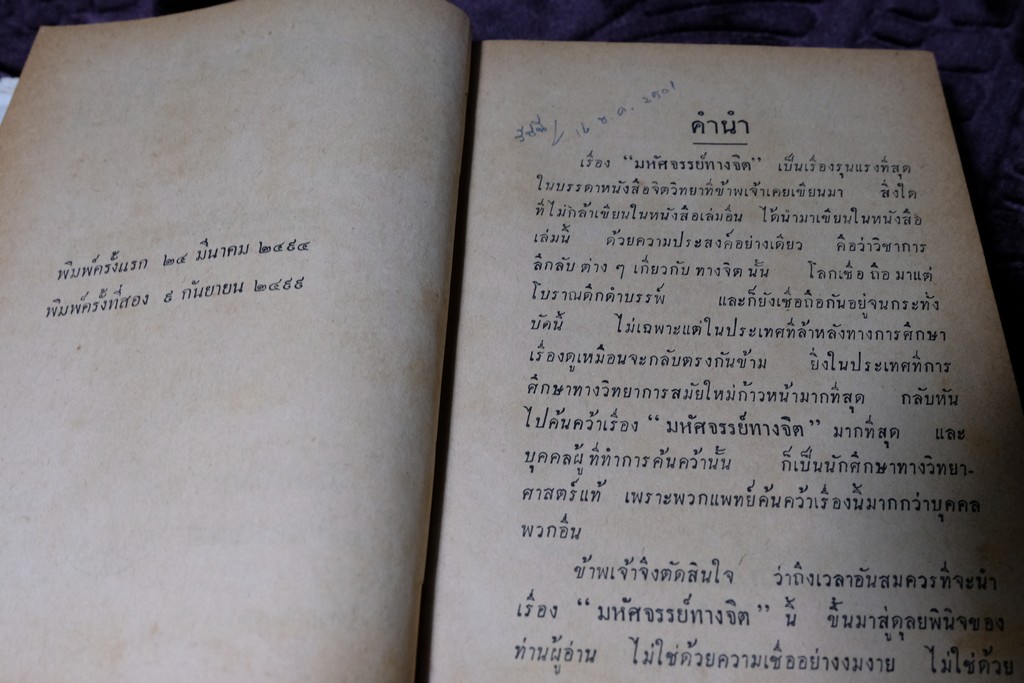 พิมพ์ครั้งแรก ๒๔ มีนาคม ๒๔๙๔
พิมพ์ครั้งที่สอง ๙ กันยายน ๒๔๙๙
๑๖ ๒๕๐๑
คำนำ
เรื่อง “มหัศจรรย์ทางจิต” เป็นเรื่องรุนแรงที่สุด
ในบรรดาหนังสือจิตวิทยาที่ข้าพเจ้าเคยเขียนมา สิ่งใด
ที่ไม่กล้าเขียนในหนังสือเล่มอื่น ได้นำมาเขียนในหนังสือ
เล่มนี้ ด้วยความประสงค์อย่างเดียว คือว่าวิชาการ
ลึกลับ ต่าง ๆ เกี่ยวกับ ทางจิต นั้น โลกเชื่อ ถือ มาแต่
โบราณดึกดำบรรพ์ และก็ยังเชื่อถือกันอยู่จนกระทั่ง
บัดนี้ ไม่เฉพาะแต่ในประเทศที่ล้าหลังทางการศึกษา
เรื่องดูเหมือนจะกลับตรงกันข้าม ยิ่งในประเทศที่การ
ศึกษาทางวิทยาการสมัยใหม่ก้าวหน้ามากที่สุด กลับหัน
ไปค้นคว้าเรื่อง “มหัศจรรย์ทางจิต” มากที่สุด และ
บุคคลผู้ที่ทำการค้นคว้านั้น ก็เป็นนักศึกษาทางวิทยา-
ศาสตร์แท้ เพราะพวกแพทย์ค้นคว้าเรื่องนี้มากกว่าบุคคล
พวกอื่น
ข้าพเจ้าจึงตัดสินใจ ว่าถึงเวลาอันสมควรที่จะนำ
เรื่อง “มหัศจรรย์ทางจิต” นี้ ขึ้นมาสู่ดุลยพินิจของ
ท่านผู้อ่าน ไม่ใช่ด้วยความเชื่ออย่างงมงาย ไม่ใช่ด้วย